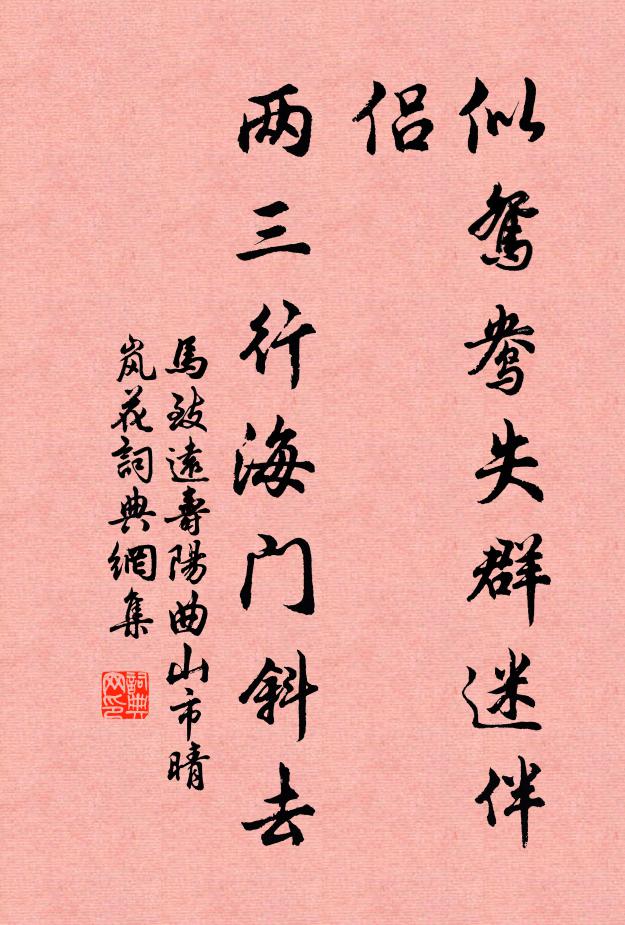 似鴛鴦失群迷伴
侣
两三行海门斜去
馬致遠壽陽曲山市晴
岚花詞典網集
詞典
网印